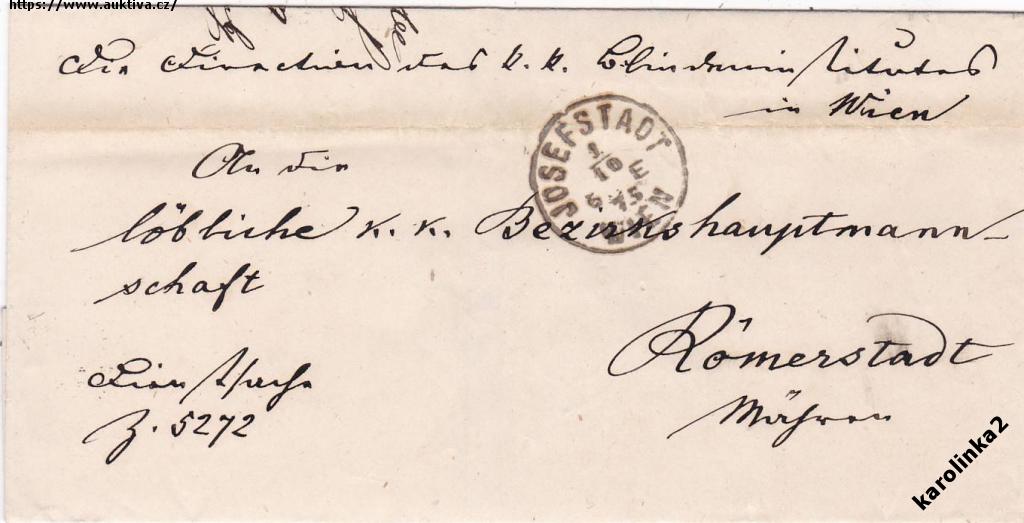 https://www.auktiva.cz/
Die Direction des k. k. Blindeninstitutes
in Wien
JOSEFSTADT
WIEN
An die
löbliche k. k. Bezirkshauptmann-
schaft
Römerstadt
Mähren
Dienstsache
Z. 5272
karolinka2